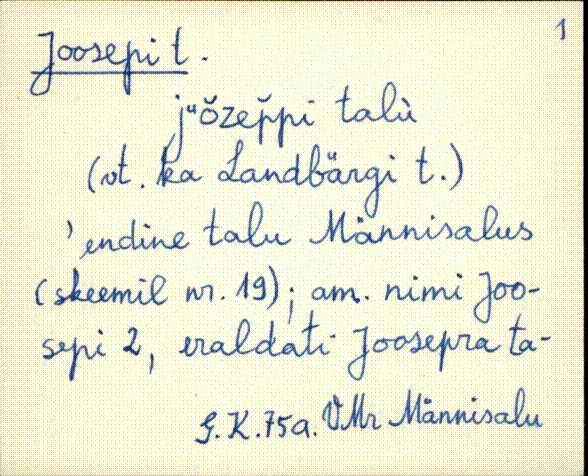 1
Joosepi t.
jᵘǒzep̆pi talù
(vt. ka Landbärgi t.)
'endine talu Männisalus
(skeemil nr. 19); am. nimi Joo-
sepi 2, eraldati Joosepra ta-
G.K. 75a. VMr Männisalu